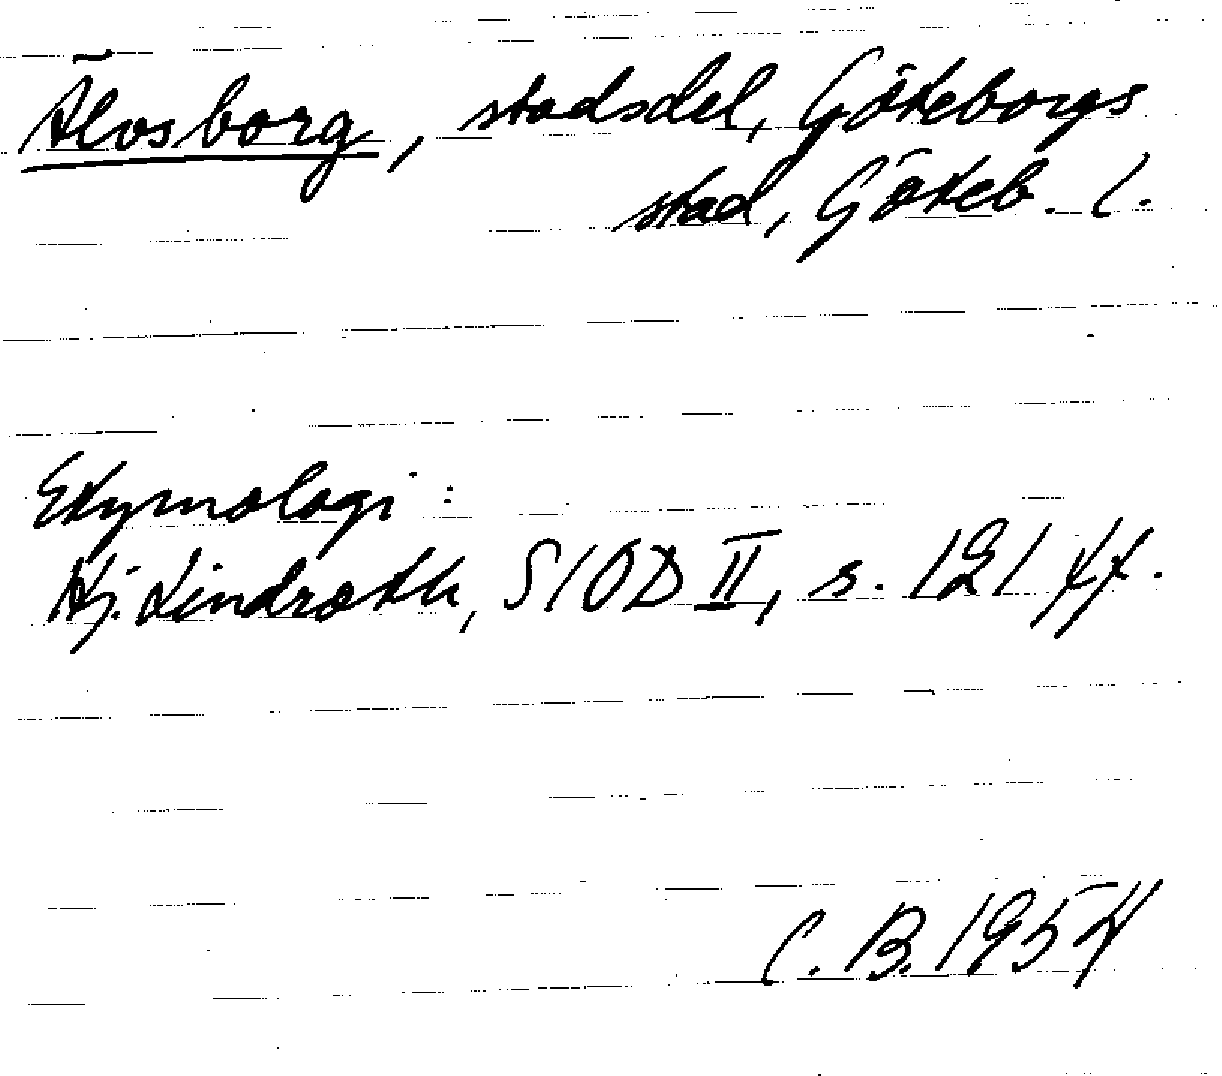 Älvsborg, stadsdel, Göteborgs
stad, Göteb. l.
Etymologi:
Hj. Lindroth, SIOD II, s. 121 ff.
C. B. 1954